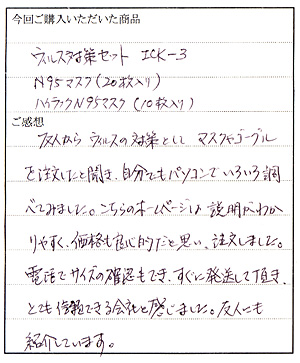 今回ご購入いただいた商品
ウィルス対策セット ICK-3
N95マスク(20枚入り)
ハイラックN95マスク(10枚入り)
ご感想
友人から ウィルスの対策として マスクやゴーグル
を注文したと聞き、自分でもパソコンでいろいろ調
べてみました。こちらのホームページは 説明がわか
りやすく、価格も良心的だと思い、注文しました。
電話でサイズの確認もでき、すぐに発送して頂き、
とても信頼できる会社と感じました。友人にも
紹介しています。